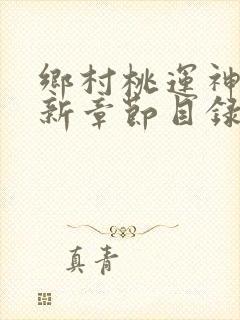 鄉村桃運神
新章節目錄
真青